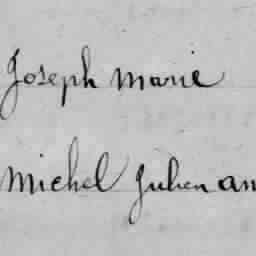 Joseph Marie
Michel Julien an